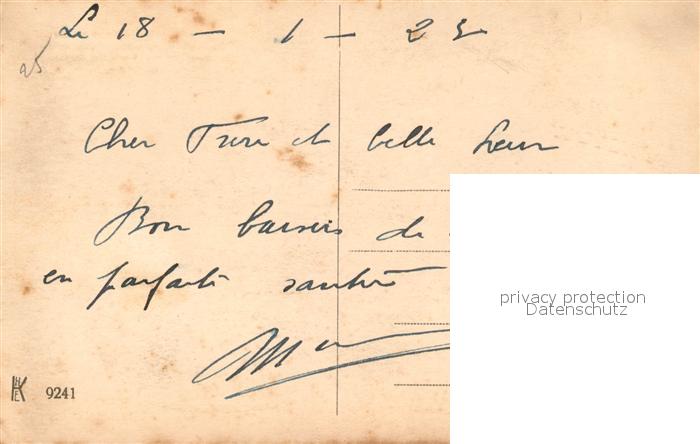 Le 18 - 1 - 25
25
Cher Frere et belle Sœur
Bon baisers de
en parfaite santé
privacy protection
Datenschutz
HKE 9241